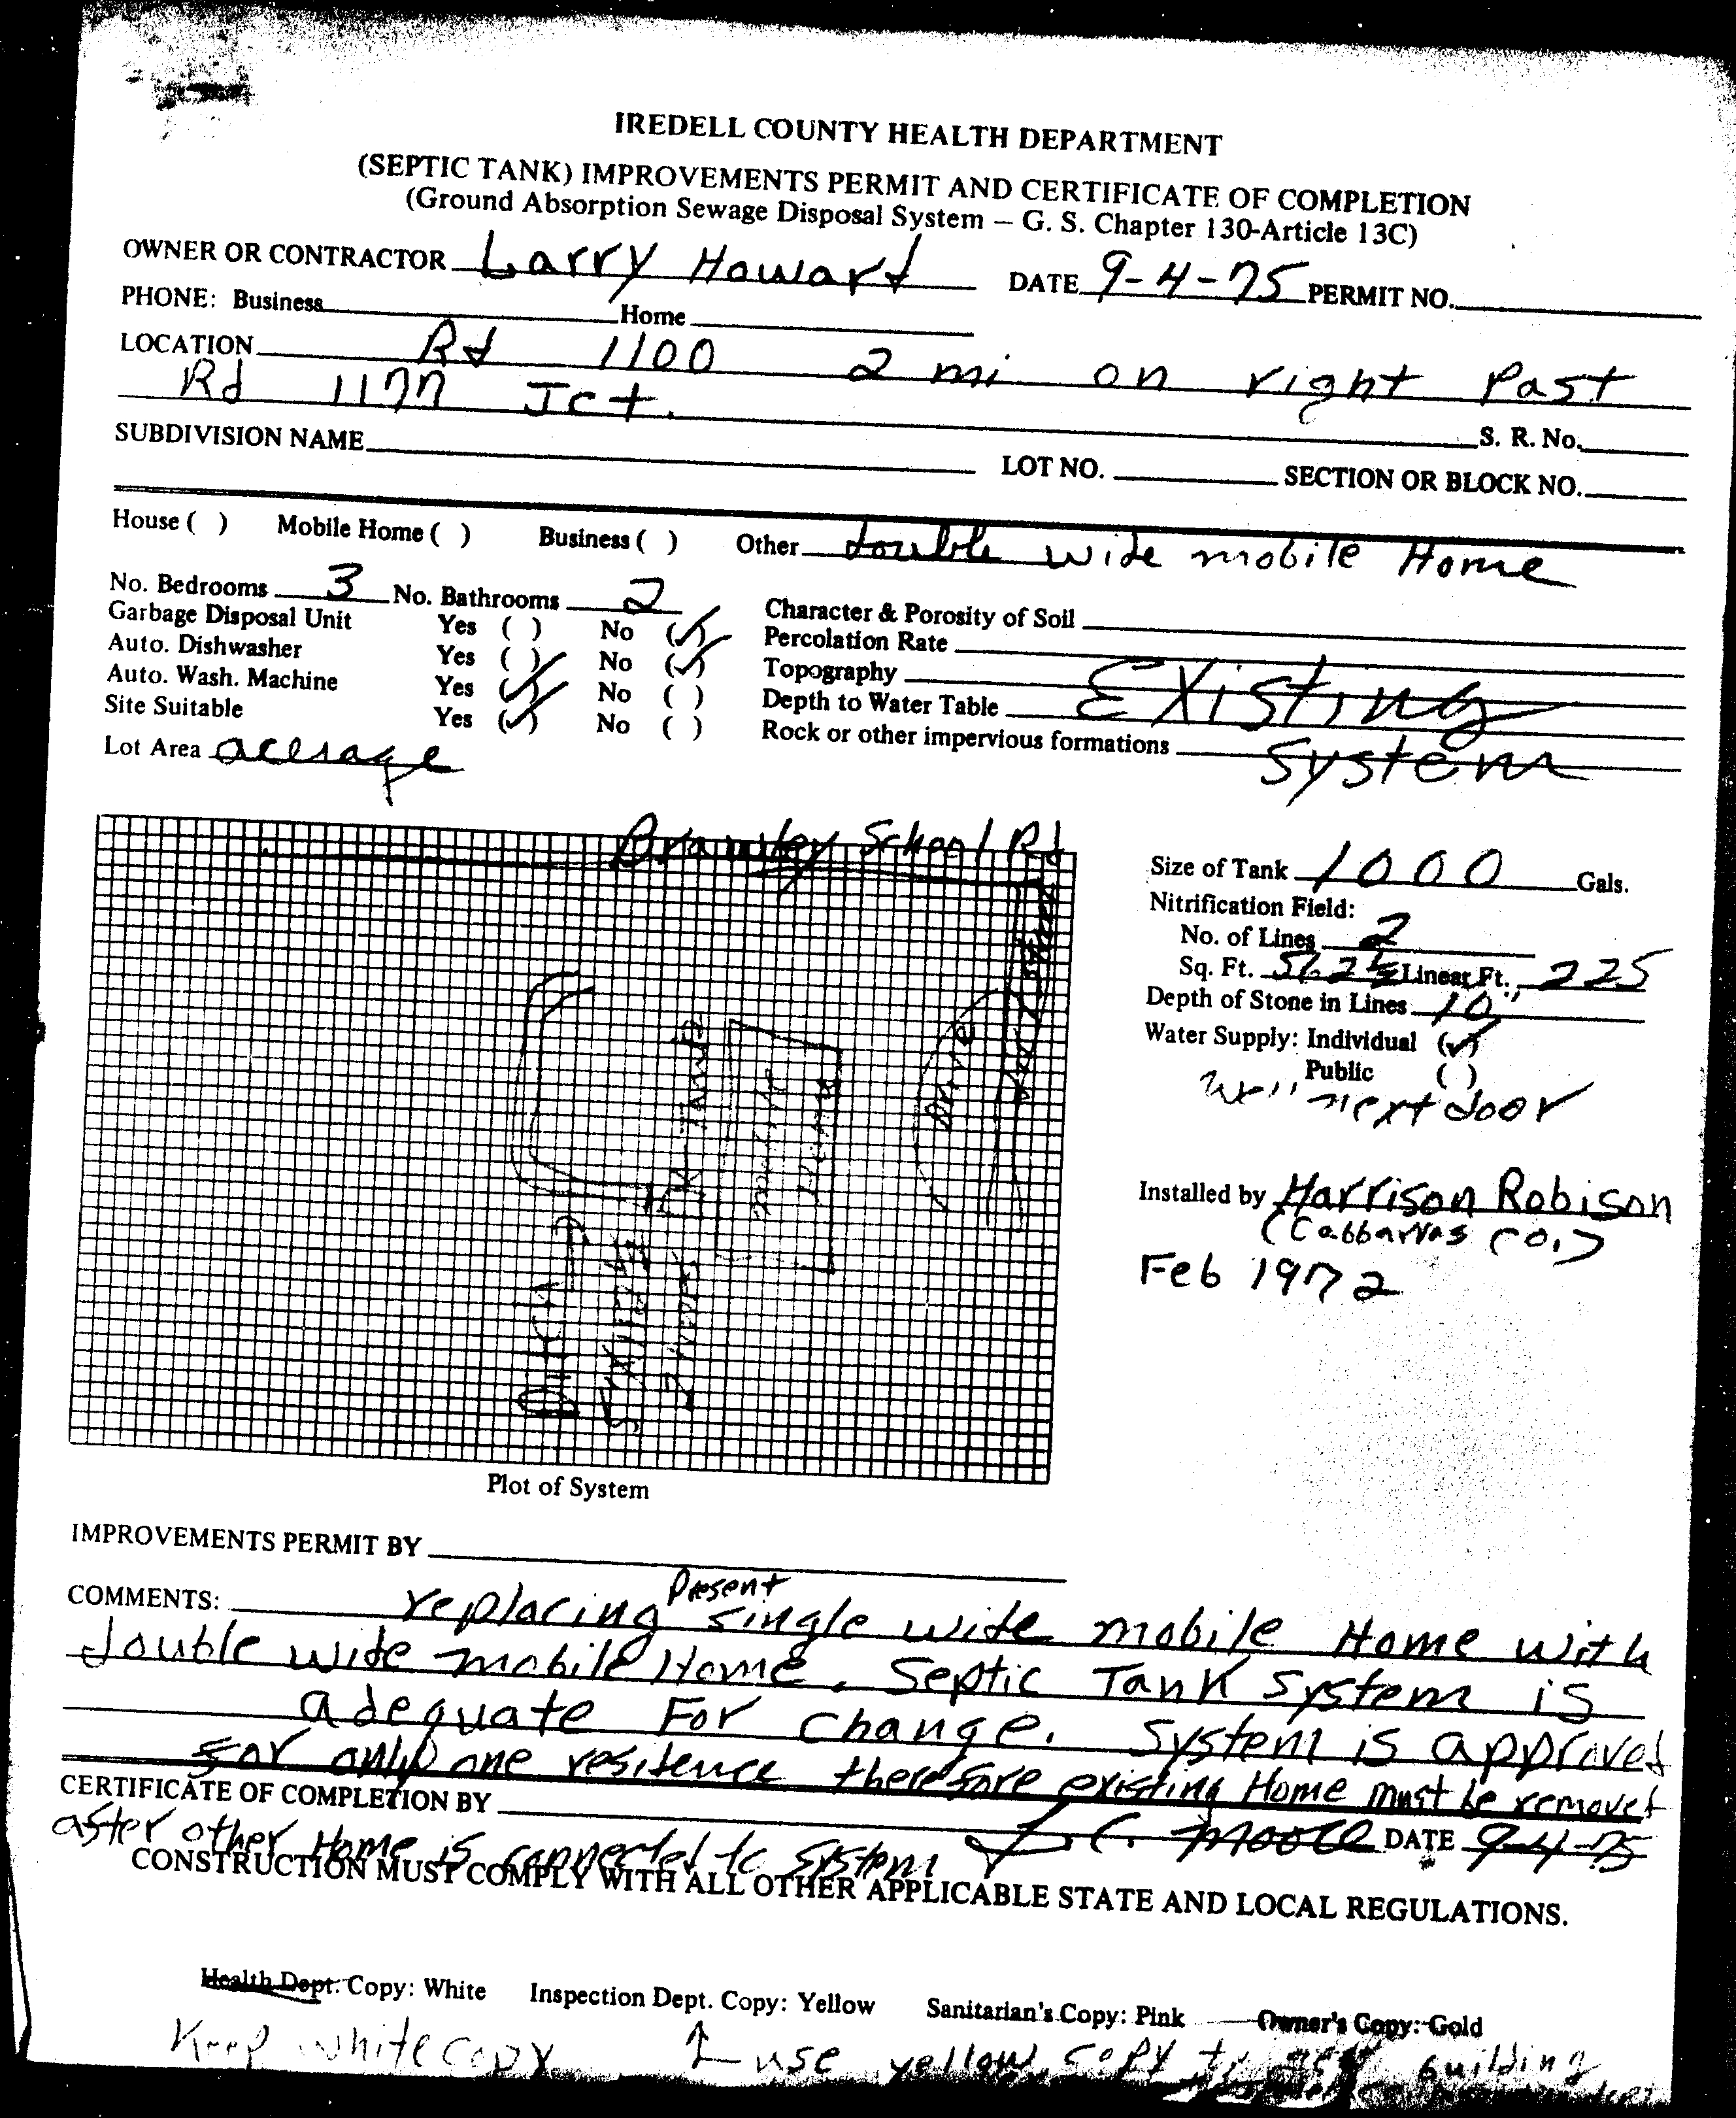 IREDELL COUNTY HEALTH DEPARTMENT
(SEPTIC TANK) IMPROVEMENTS PERMIT AND CERTIFICATE OF COMPLETION
(Ground Absorption Sewage Disposal System — G. S. Chapter 130-Article 13C)
OWNER OR CONTRACTOR Larry Howard DATE 9-4-75 PERMIT NO.
PHONE: Business Home
LOCATION Rd 1100 2 mi on right Past
Rd 1177 Jct. S. R. No.
SUBDIVISION NAME LOT NO. SECTION OR BLOCK NO.
House ( ) Mobile Home ( ) Business ( ) Other double wide mobile Home
No. Bedrooms 3 No. Bathrooms 2 Character & Porosity of Soil
Garbage Disposal Unit Yes ( ) No (✓) Percolation Rate
Auto. Dishwasher Yes ( ) No (✓) Topography
Auto. Wash. Machine Yes (✓) No ( ) Depth to Water Table Existing
Site Suitable Yes (✓) No ( ) Rock or other impervious formations System
Lot Area acerage
Brawley School Rd
Drive
mobile Home
TK
2 lines
Size of Tank 1000 Gals.
Nitrification Field:
No. of Lines 2
Sq. Ft. 562½ Linear Ft. 225
Depth of Stone in Lines 10"
Water Supply: Individual (✓)
Public ( )
well next door
Installed by Harrison Robison
(Cabbarras Co.)
Feb 1972
Plot of System
IMPROVEMENTS PERMIT BY
COMMENTS: replacing Present single wide mobile Home with
double wide mobile Home. Septic Tank System is
adequate For change. System is approved
For only one residence therefore existing Home must be removed
CERTIFICATE OF COMPLETION BY L.C. Moore DATE 9-4-75
after other Home is connected to system
CONSTRUCTION MUST COMPLY WITH ALL OTHER APPLICABLE STATE AND LOCAL REGULATIONS.
Health Dept. Copy: White Inspection Dept. Copy: Yellow Sanitarian's Copy: Pink Owner's Copy: Gold
Keep white copy ↑ use yellow copy to get building